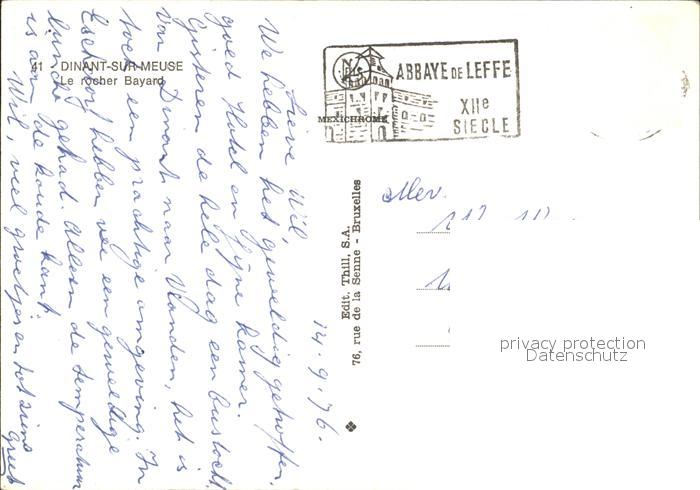 41 DINANT-SUR-MEUSE
Le rocher Bayard
14.9.'76.
Lieve Wil,
We hebben het geweldig getroffen,
goed Hotel en fijne kamer.
Gisteren de hele dag een bustocht
van Dinant naar Vianden, het is
toch een prachtige omgeving. In
hebben we een geweldige
lunch gehad. Alleen de temperatuur
is aan de koude kant.
Wil, veel groetjes en tot ziens
Greet
ABBAYE DE LEFFE
XIIe
SIECLE
MEXICHROME
Edit. Thill, S.A.
76, rue de la Senne - Bruxelles
Mev.
privacy protection
Datenschutz